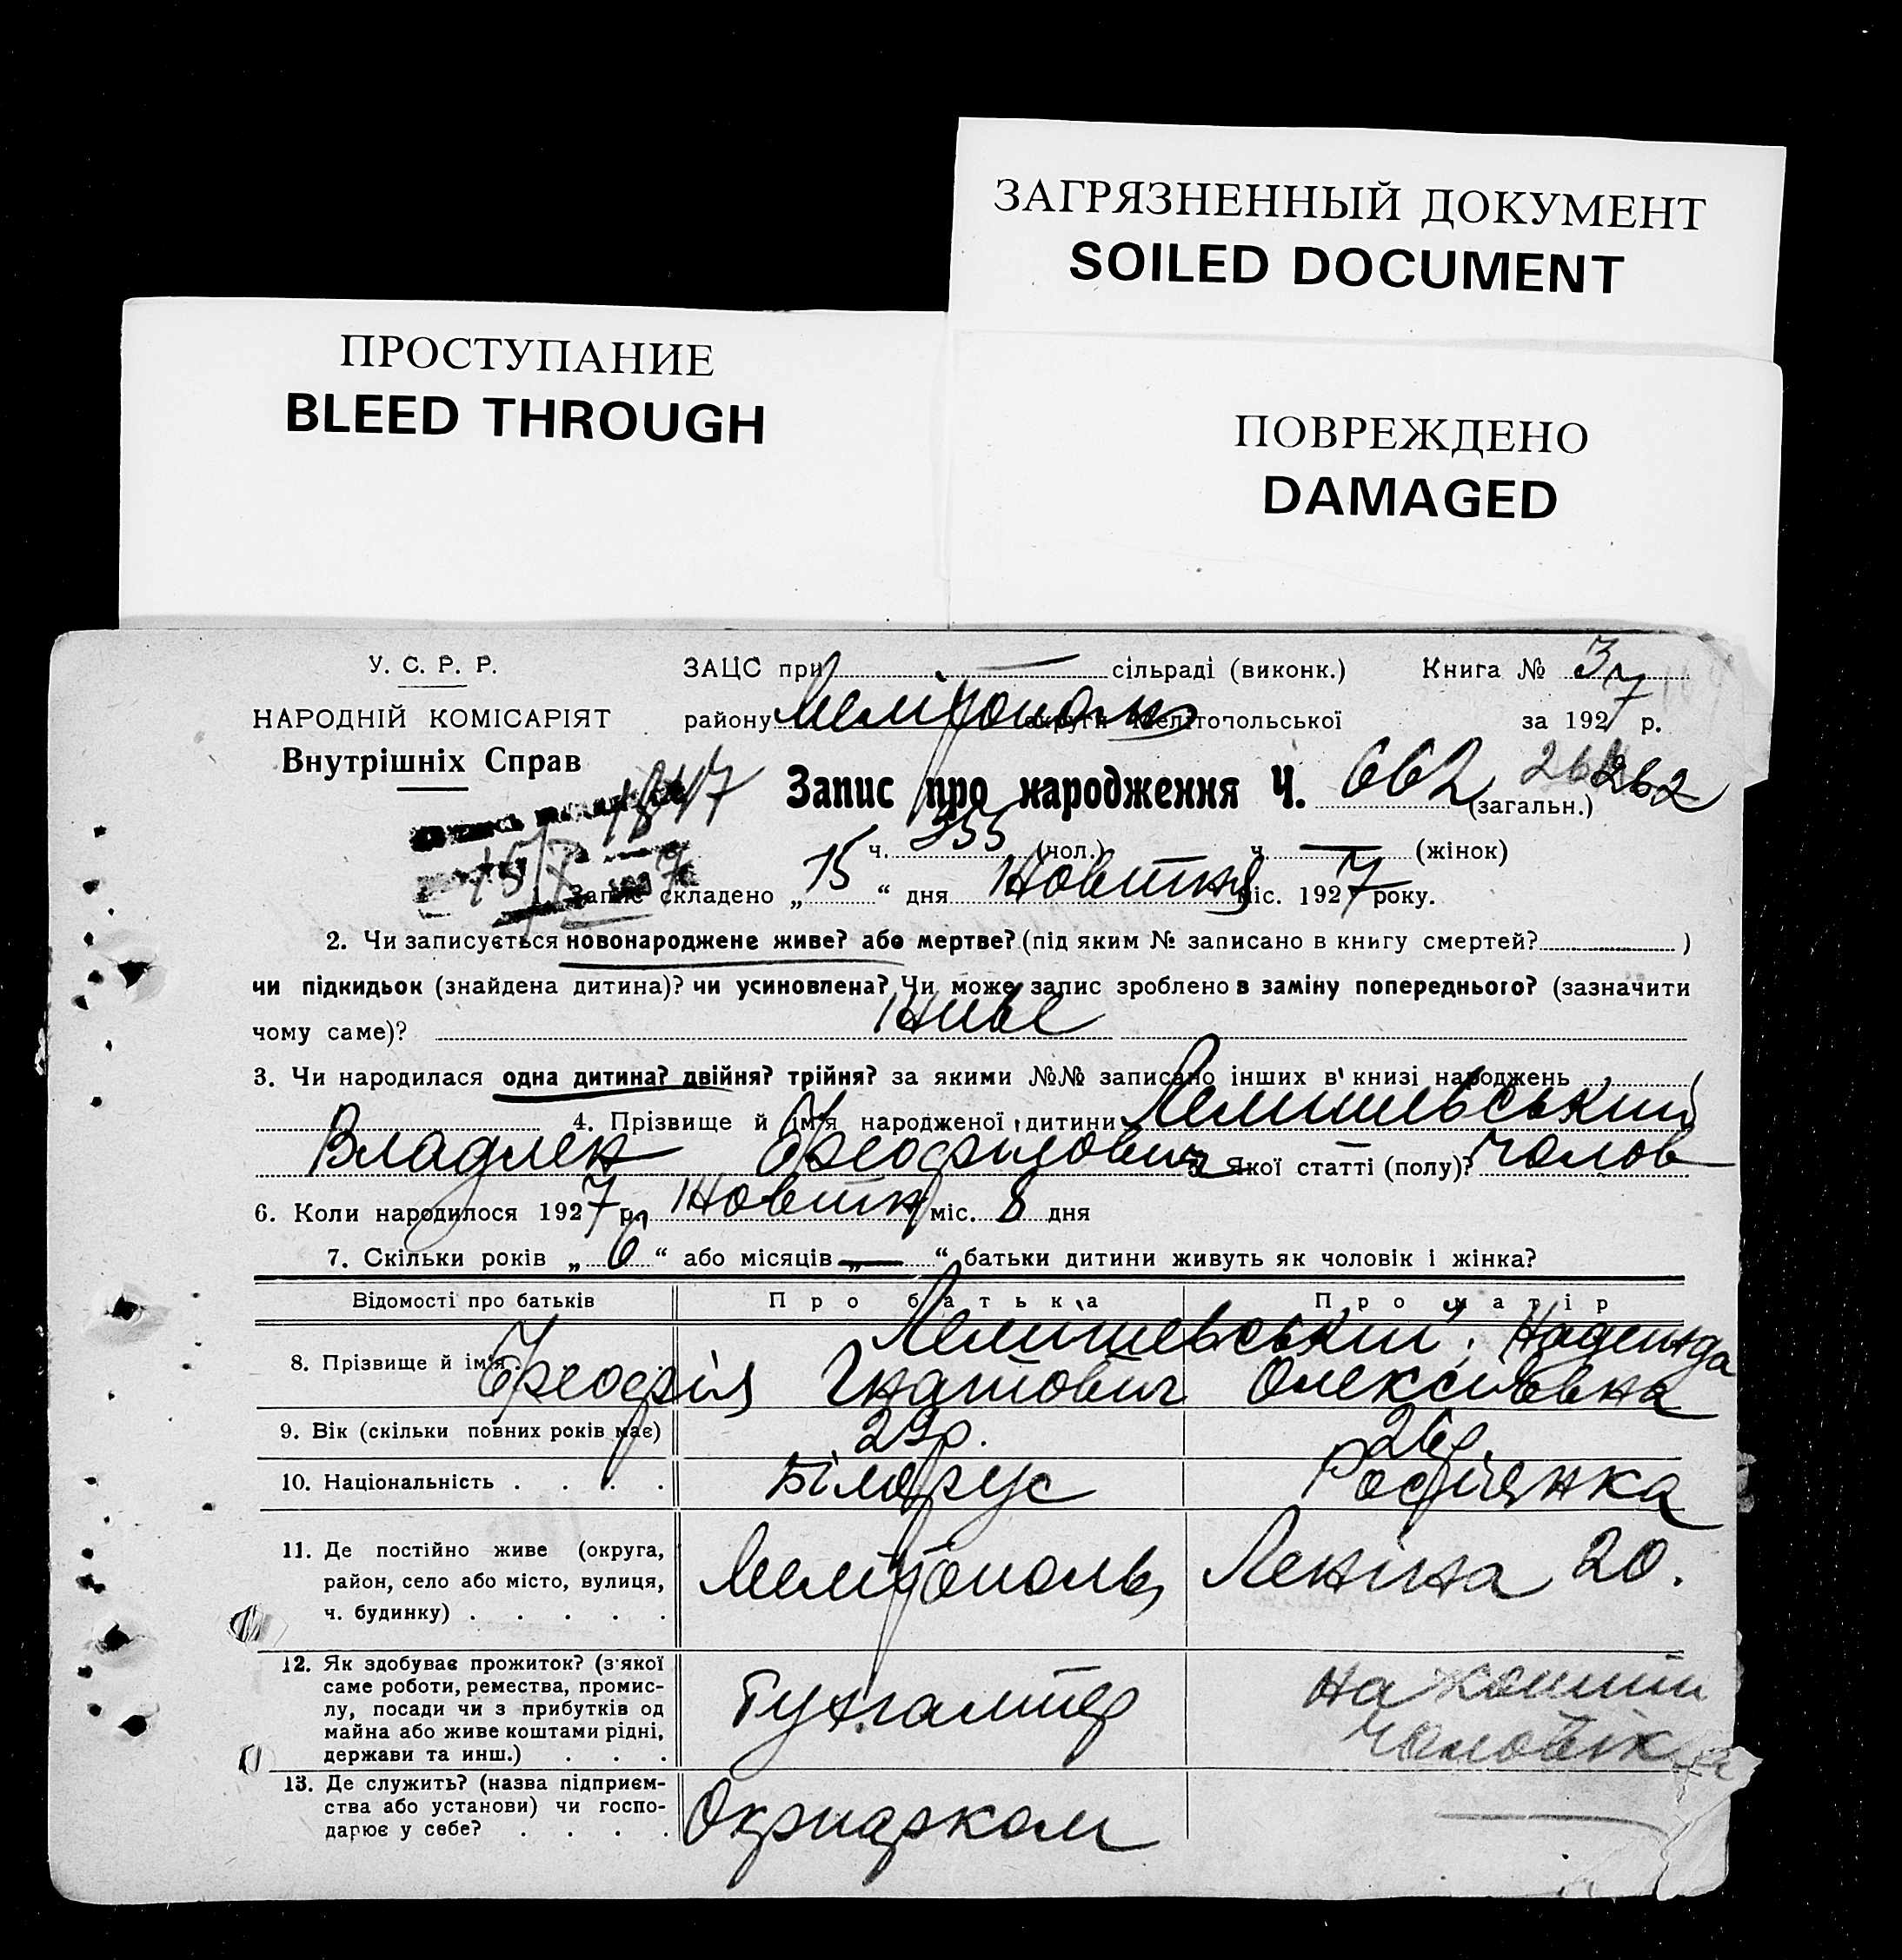 ЗАГРЯЗНЕННЫЙ ДОКУМЕНТ
SOILED DOCUMENT
ПРОСТУПАНИЕ
BLEED THROUGH
ПОВРЕЖДЕНО
DAMAGED
У. С. Р. Р.
НАРОДНІЙ КОМІСАРІЯТ
Внутрішніх Справ
ЗАЦС при — сільраді (виконк.) Книга № 3
району Мелітополь округи Мелітопольської за 1927 р.
Запис про народження Ч. 662 (загальн.) 262
ч. 355 (чол.) ч. — (жінок)
1847
15/X
1. Запис складено „ 15 “ дня Жовтня міс. 1927 року.
2. Чи записується новонароджене живе? або мертве? (під яким № записано в книгу смертей? )
чи підкидьок (знайдена дитина)? чи усиновлена? Чи може запис зроблено в заміну попереднього? (зазначити
чому саме)? Живе
3. Чи народилася одна дитина? двійня? трійня? за якими №№ записано інших в книзі народжень
4. Прізвище й ім'я народженої дитини
Владлен Феофілович 5. Якої статті (полу)? чолов
6. Коли народилося 1927 р. Жовтн міс. 8 дня
7. Скільки років „ 6 “ або місяців „ — “ батьки дитини живуть як чоловік і жінка?
Відомості про батьків Про батька Про матір
8. Прізвище й ім'я. Надежда
Феофіл Гнатович Олексіївна
9. Вік (скільки повних років має) 29р. 26р.
10. Національність . . . . Білорус Росіянка
11. Де постійно живе (округа,
район, село або місто, вулиця,
ч. будинку) . . . . .
Мелітополь, Леніна 20.
12. Як здобуває прожиток? (з якої
саме роботи, ремества, промис-
лу, посади чи з прибутків од
майна або живе коштами рідні,
держави та инш.) . . .
Бухгалтер
на кошти
чоловіка
13. Де служить? (назва підприєм-
ства або установи) чи госпо-
дарює у себе? . . . .
—